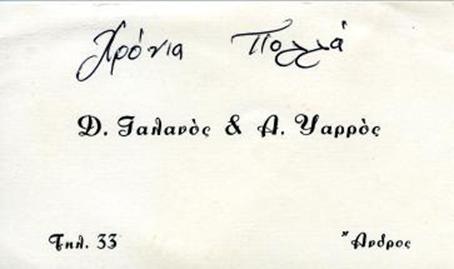 Χρόνια Πολλά
Δ. Γαλανὸς & Α. Ψαρρὸς
Τηλ. 33
Ἄνδρος